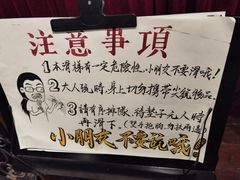 注意事項
1木滑梯有一定危險性,小朋友不要滑哦!
2大人滑時,身上切勿攜帶尖銳物品.
3請有序排隊,待墊子无人時
再滑下。(雙手抱胸,勿扶兩邊)
小朋友不要玩哦!